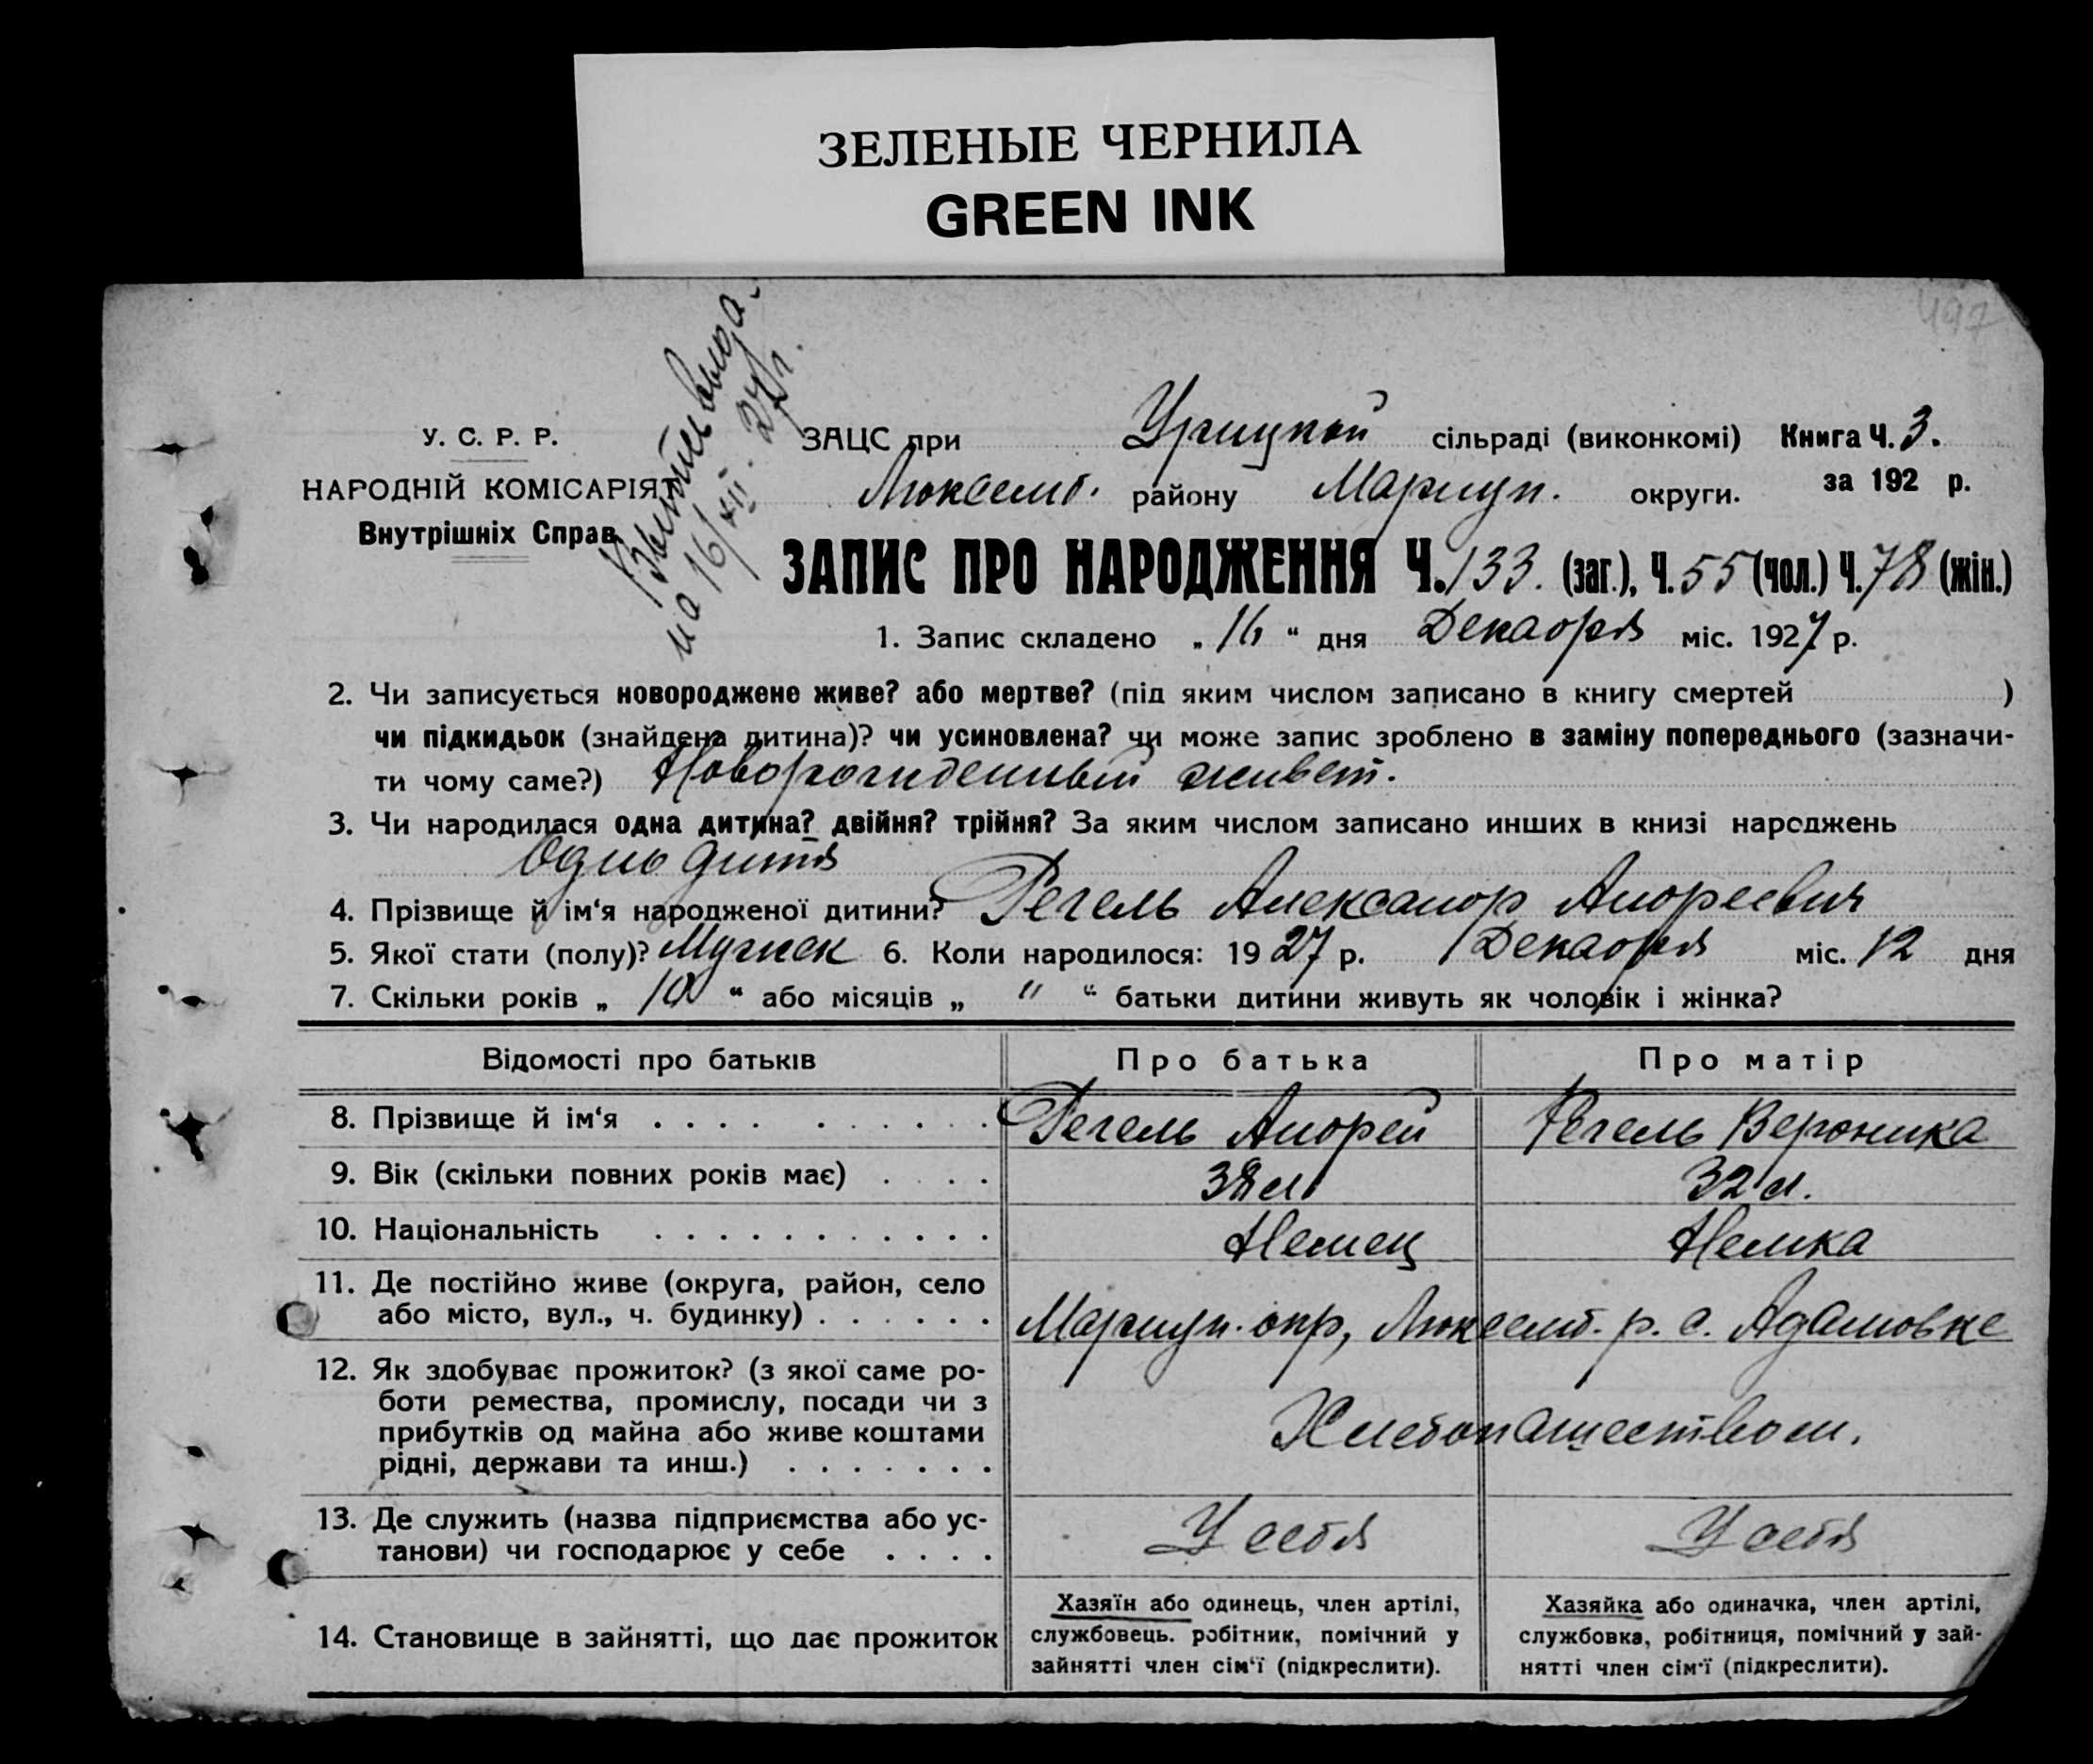 ЗЕЛЕНЫЕ ЧЕРНИЛА
GREEN INK
497
У. С. Р. Р.
НАРОДНІЙ КОМІСАРІЯТ
Внутрішніх Справ
на 16/XII. 27 г.
ЗАЦС при Урицкой сільраді (виконкомі) Книга Ч. 3.
Люксемб. району Мариуп. округи. за 192 р.
ЗАПИС ПРО НАРОДЖЕННЯ Ч. 133. (заг.), Ч. 55 (чол.) Ч. 78 (жін.)
1. Запис складено „ 16 “ дня Декабря міс. 1927 р.
2. Чи записується новороджене живе? або мертве? (під яким числом записано в книгу смертей )
чи підкидьок (знайдена дитина)? чи усиновлена? чи може запис зроблено в заміну попереднього (зазначи-
ти чому саме?) Новорожденный живет.
3. Чи народилася одна дитина? двійня? трійня? За яким числом записано инших в книзі народжень
Одно дитя
4. Прізвище й ім‘я народженої дитини? Регель Александр Андреевич
5. Якої стати (полу)? Мужск 6. Коли народилося: 1927 р. Декабря міс. 12 дня
7. Скільки років „ 10 “ або місяців „ " “ батьки дитини живуть як чоловік і жінка?
Відомості про батьків Про батька Про матір
8. Прізвище й ім‘я . . . . . . . . . . Регель Андрей Регель Вероника
9. Вік (скільки повних років має) . . . . 38 л. 32 л.
10. Національність . . . . . . . . . . . . Немец Немка
11. Де постійно живе (округа, район, село
або місто, вул., ч. будинку) . . . . . . Мариуп. окр, Люксемб. р. с. Адамовке
12. Як здобуває прожиток? (з якої саме ро-
боти ремества, промислу, посади чи з
прибутків од майна або живе коштами
рідні, держави та инш.) . . . . . . . Хлебопашеством.
13. Де служить (назва підприємства або ус-
танови) чи господарює у себе . . . . У себя У себя
14. Становище в зайнятті, що дає прожиток
Хазяїн або одинець, член артілі,
службовець. робітник, помічний у
зайнятті член сім‘ї (підкреслити).
Хазяйка або одиначка, член артілі,
службовка, робітниця, помічний у зай-
нятті член сім‘ї (підкреслити).